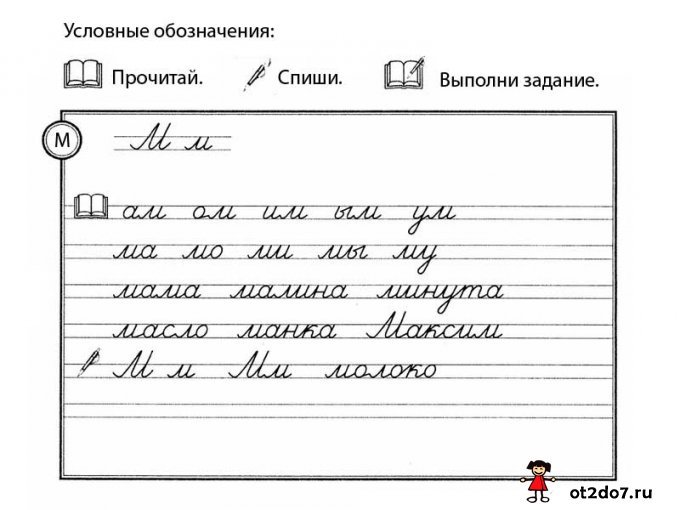 Условные обозначения:
Прочитай. Спиши. Выполни задание.
М
М м
ам ом им ым ум
ма мо ми мы му
мама малина минута
масло манка Максим
М м Мм молоко
ot2do7.ru